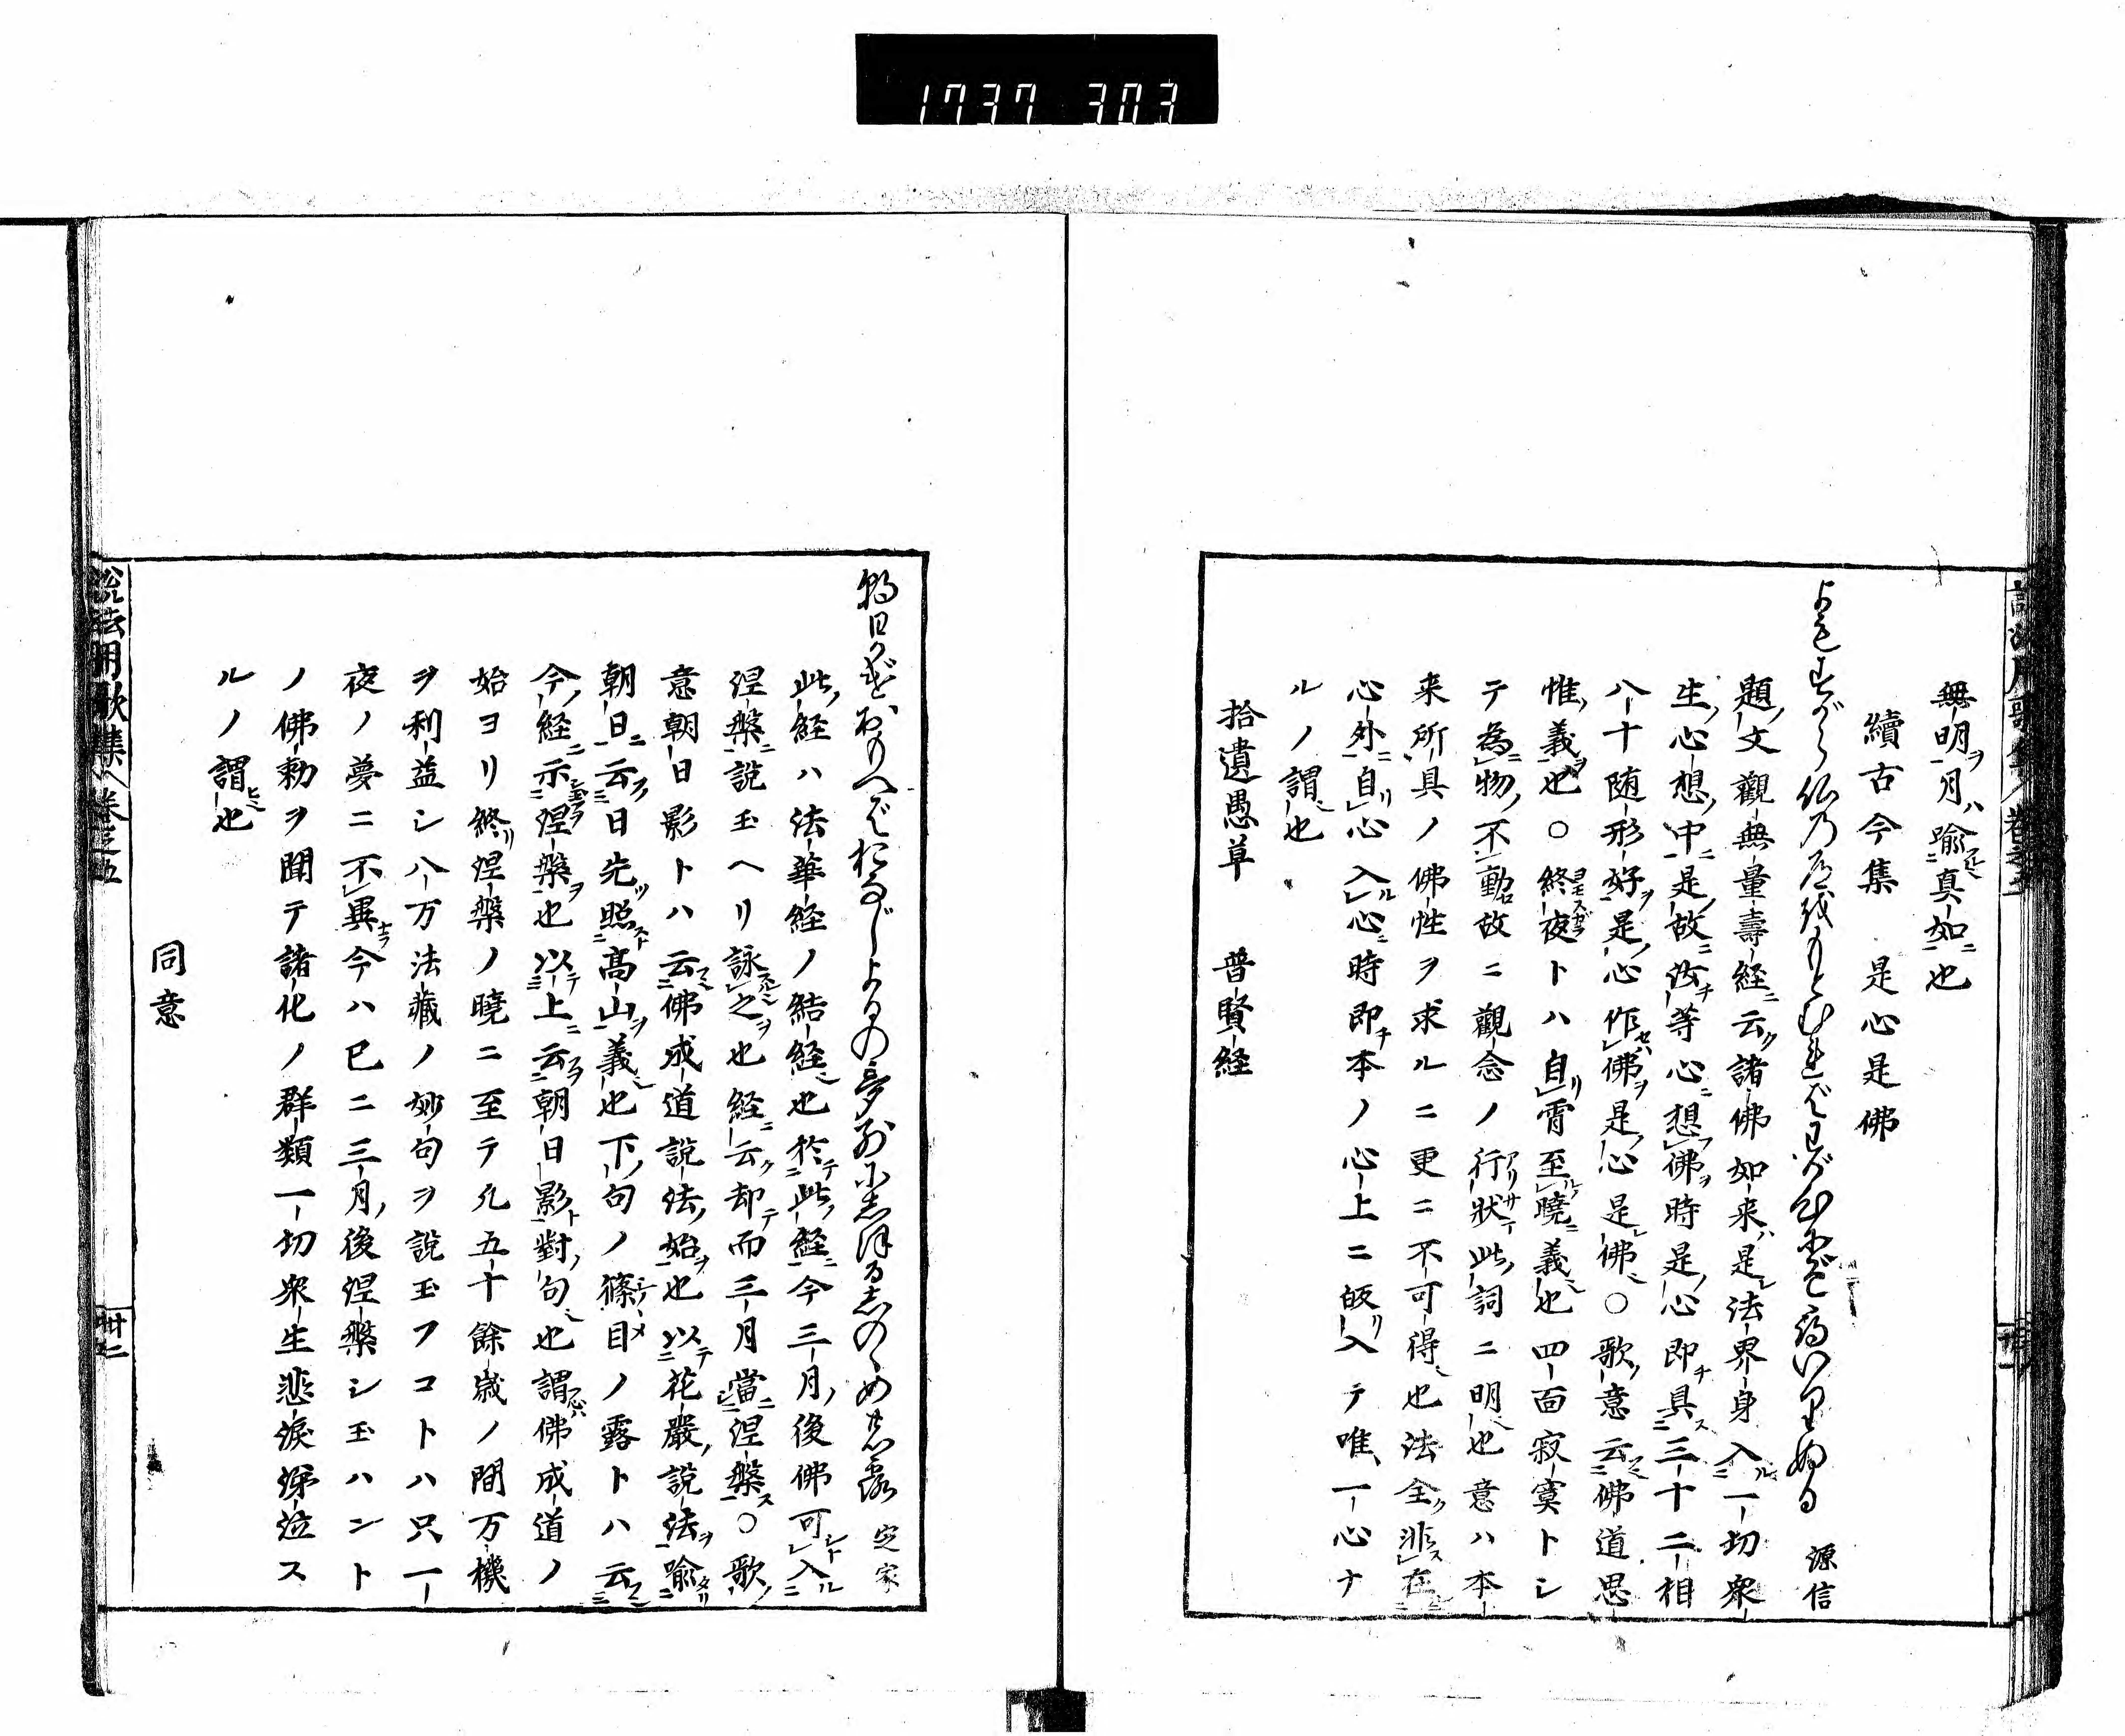 1737 303
無明ヲ月ハ喩真如ニ也
續古今集　是心是佛
よもすがら仏の道をもとむればわが心にぞたづねいりぬる　源信
題ノ文觀無量壽経ニ云ク諸佛如来ハ是レ法界身入ル一切衆
生ノ心想ノ中ニ是ノ故ニ汝チ等心ニ想フ佛ヲ時是ノ心即チ具ス三十二相
八十随形好ヲ是ノ心作セハ佛ヲ是ノ心是レ佛○歌ノ意云佛道思
惟ノ義也○終夜ヨモスガラトハ自リ霄至ルノ曉ニ義也四面寂寞トシ
テ為ニ物ノ不動故ニ觀念ノ行狀アリサマ此ノ詞ニ明也意ハ本
来所具ノ佛性ヲ求ルニ更ニ不可得也法全ク非ス在
心外ニ自リ心入ル心ニ時即チ本ノ心上ニ皈リ入テ唯一心ナ
ルノ謂也
拾遺愚草　普賢経
説法用歌集　巻之五
朝日かげおもへばおなじよるの夢別にしほるしのゝめの露　定家
此ノ経ハ法華経ノ結経也於テ此ノ経ニ今三月ノ後佛可シト入ル
涅槃ニ説玉ヘリ詠之ヲ也経ニ云ク却テ而三月當ニ涅槃ス○歌ノ
意朝日影トハ云佛成道説法ノ始ヲ也以テ花嚴ノ説法ヲ喩タリ
朝日ニ云フ日先ツ照スト高山ヲ義也下ノ句ノ篠目ノ露トハ云
今ノ経ニ示涅槃ヲ也以テ上ニ云フヲ朝日影ト對句也謂佛成道ノ
始ヨリ終リ涅槃ノ曉ニ至テ凡五十餘歳ノ間万機
ヲ利益シ八万法藏ノ妙句ヲ説玉フコトハ只一
夜ノ夢ニ不異ナラ今ハ已ニ三月ノ後涅槃シ玉ハント
ノ佛勅ヲ聞テ諸化ノ群類一切衆生悲涙涕泣ス
ルノ謂也
同意
説法用歌集　巻之五　卅二